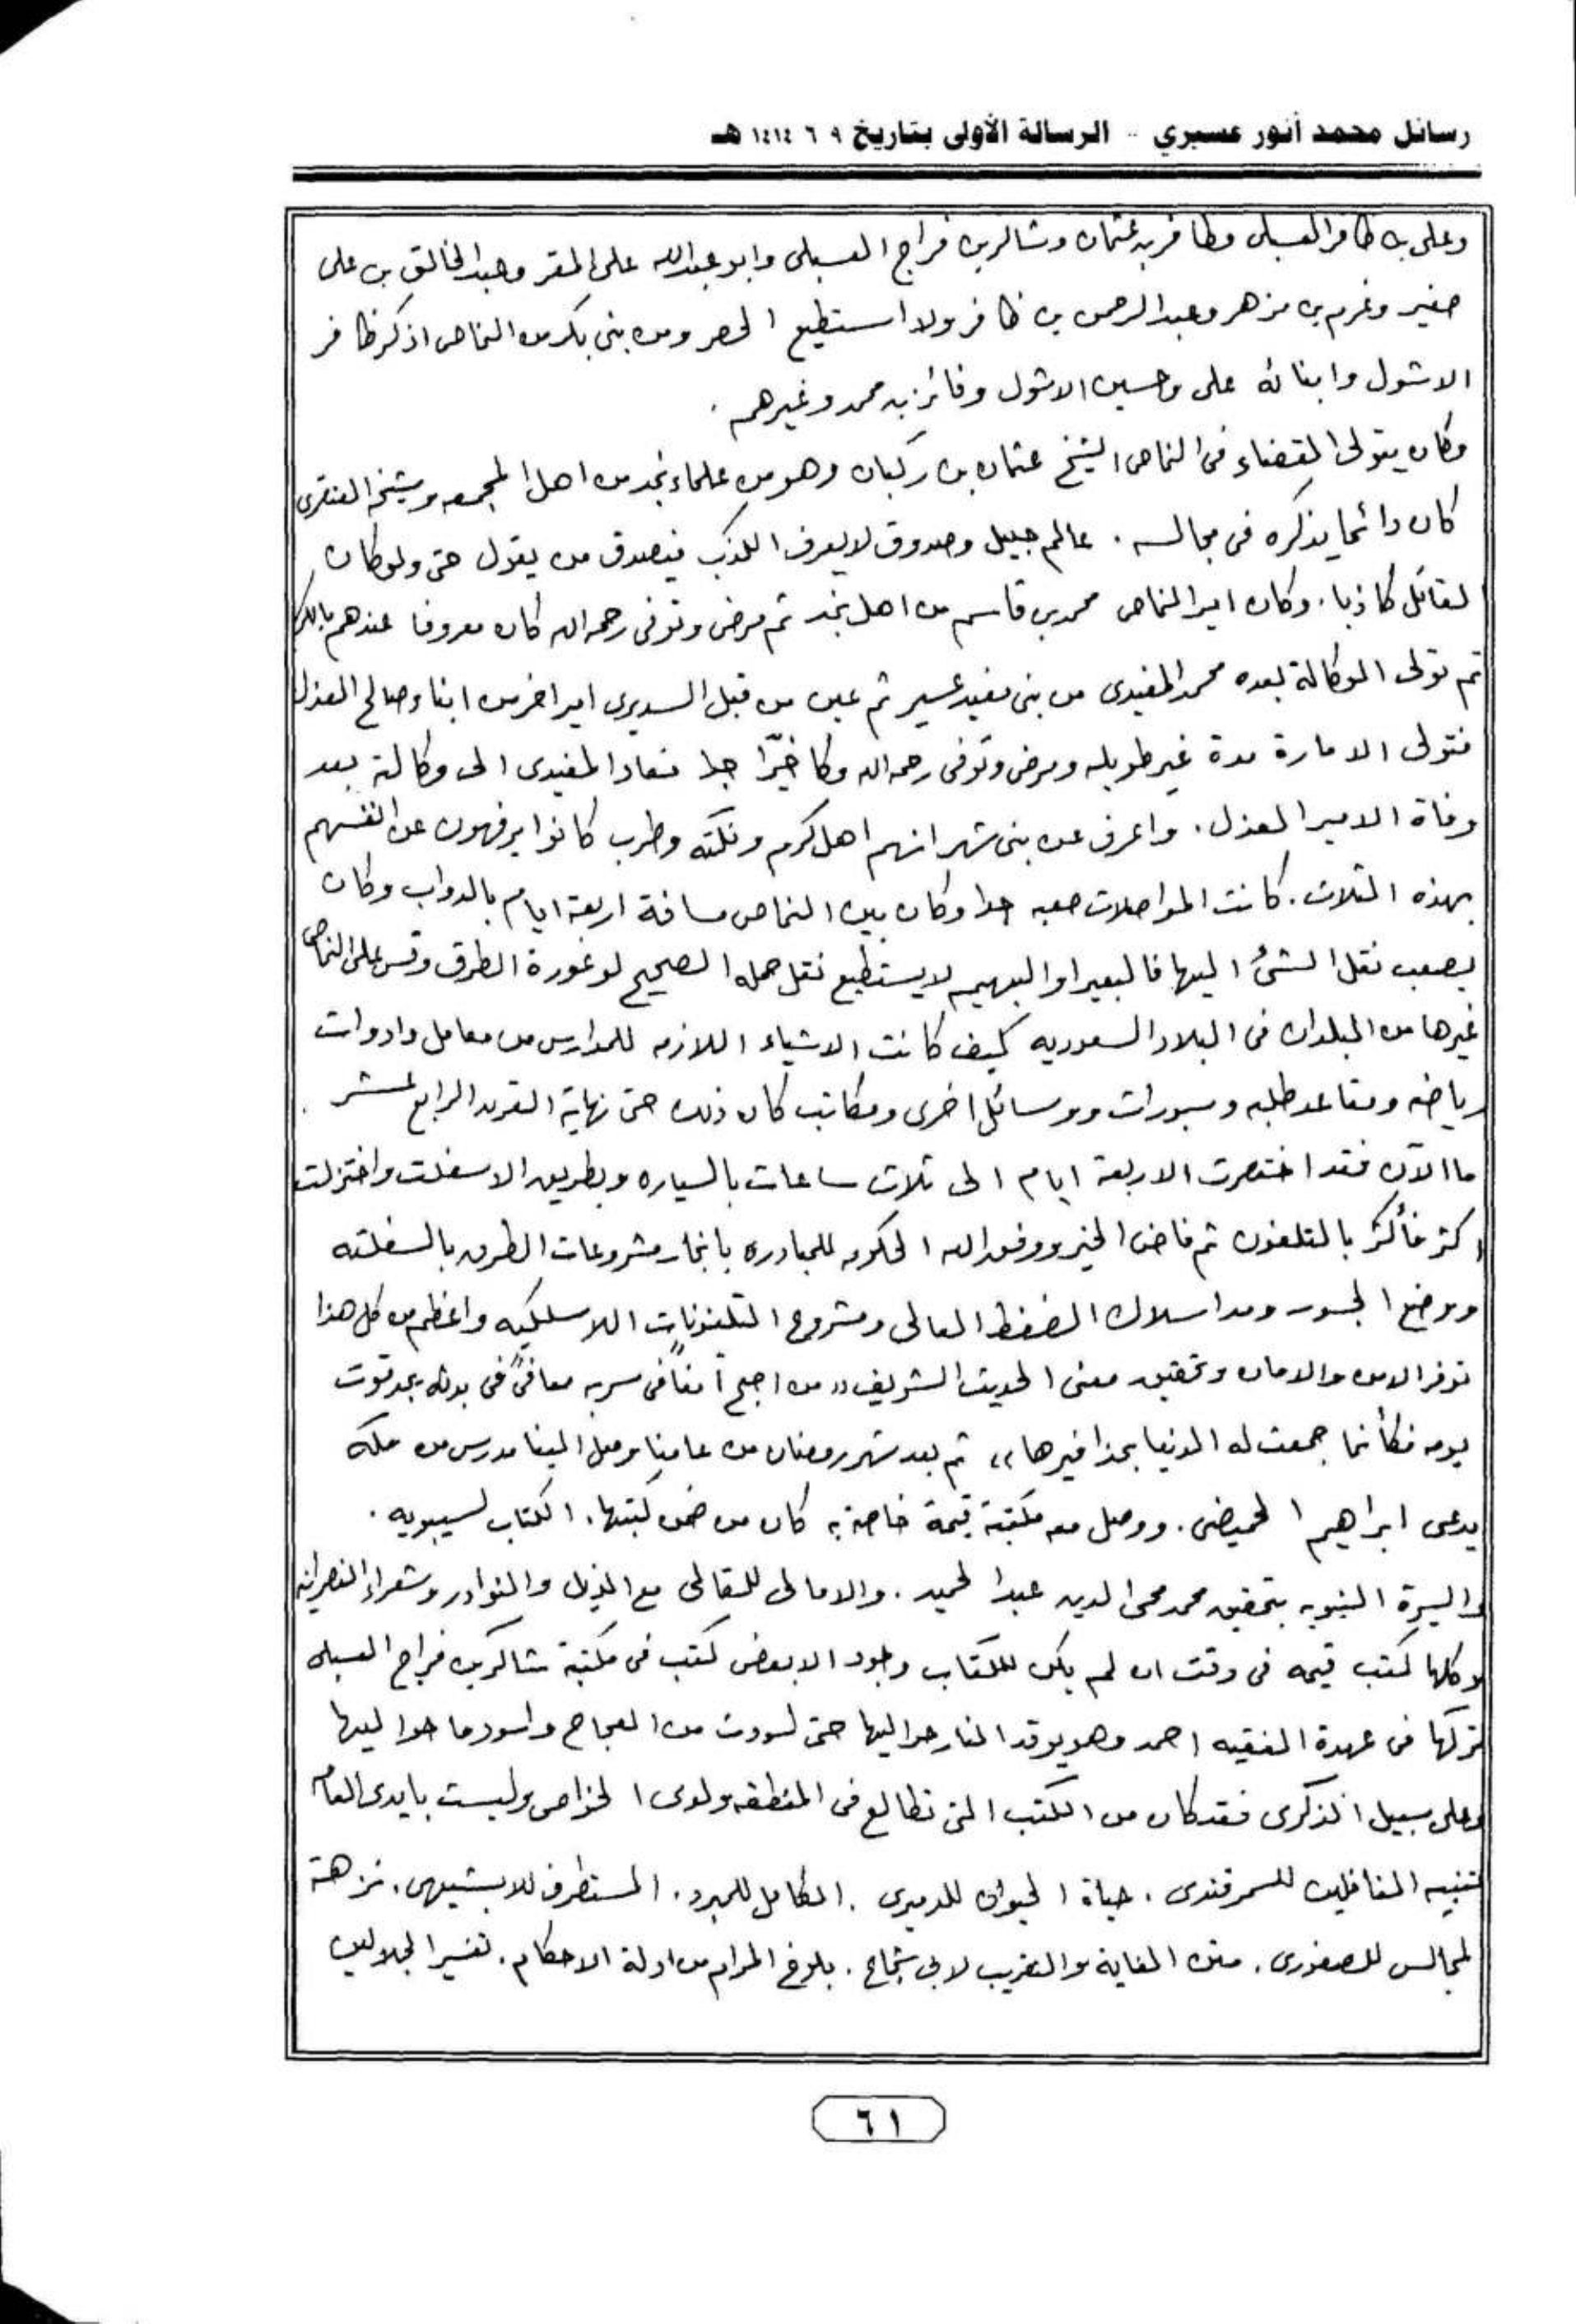 رسائل محمد أنور عسيري -- الرسالة الأولى بتاريخ ٩ ٦ ١٤١٤ هـ
وعلى بن ظافر العسبلى وظافر بن عثمان وشاكر بن فراج العسبلى وابو عبدالله على المقر وعبدالخالق بن على
صغير وغرم بن مزهر وعبدالرحمن بن ظافر ولا استطيع الحصر ومن بنى بكر من النماص اذكر ظافر
الاشول وابنائه على وحسين الاشول وفائز بن محمد وغيرهم .
وكان يتولى القضاء فى النماص الشيخ عثمان بن ركبان وهو من علماء نجد من اهل المجمعه وشيخه العنقرى
كان دائما يذكره فى مجالسه . عالم جليل وصدوق لا يعرف الكذب فيصدق من يقول حتى ولو كان
القائل كاذبا . وكان امير النماص محمد بن قاسم من اهل نجد ثم مرض وتوفى رحمه اله كان معروفا عندهم
ثم تولى الوكالة بعده محمد المفيدى من بنى مفيد عسير ثم عين من قبل السديرى امير اخر من ابناء صالح العذل
فتولى الامارة مدة غير طويله ومرض وتوفى رحمه اله وكا خيّرا جدا فعاد المفيدى الى وكالته بعد
وفاة الامير العذل . واعرف عن بنى شهر انهم اهل كرم ونكته وطرب كانوا يرفهون عن انفسهم
بهذه الثلاث . كانت المواصلات صعبه جدا وكان بين النماص مسافة اربعة ايام بالدواب وكان
يصعب نقل الشئ اليها فالبعير او البهيم لا يستطيع نقل حمله الصحيح لوعورة الطرق وقس على النماص
غيرها من البلدان فى البلاد السعوديه كيف كانت الاشياء اللازمه للمدارس من معامل وادوات
رياضه ومقاعد طلبه وسبورات ووسائل اخرى ومكاتب كان ذلك حتى نهاية القرن الرابع عشر .
ما الآن فقد اختصرت الاربعة ايام الى ثلاث ساعات بالسياره وبطريق الاسفلت واختزلت
اكثر فأكثر بالتلفون ثم فاض الخير ووفق اله الحكومه للمبادره بانجاز مشروعات الطرق بالسفلته
ووضع الجسور ومد اسلاك الضغط العالى ومشروع التلفونات اللاسلكيه واعظم من كل هذا
توفر الامن والامان وتحقيق معنى الحديث الشريف (( من اصبح آمنا فى سربه معافىً فى بدنه يجد قوت
يومه فكأنما جمعت له الدنيا بحذافيرها )) ثم بعد شهر رمضان من عامنا وصل الينا مدرس من مكه
يدعى ابراهيم الحميضى . ووصل معه مكتبة قيمة خاصة به كان من ضمن كتبها . الكتاب لسيبويه .
والسيرة النبويه بتحقيق محمد محى الدين عبدالحميد . والامالى للقالى مع الذيل والنوادر وشعراء النصرانيه
وكلها كتب قيمه فى وقت ان لم يكن للكتاب وجود الا بعض كتب فى مكتبة شاكر بن فراج العسبلى
تركها فى عهدة الفقيه احمد وهو يوقد النار حواليها حتى اسودت من العجاج واسود ما حواليها
وعلى سبيل الذكرى فقد كان من الكتب التى تطالع فى المنطقه ولدى الخواص وليست بايدى العامه
تنبيه الغافلين للسمرقندى . حياة الحيوان للدميرى . الكامل للمبرد . المستطرف للابشيهى . نزهة
لمجالس للصفورى . متن الغاية والتقريب لابى شجاع . بلوغ المرام من ادلة الاحكام . تفسير الجلالين
٦١